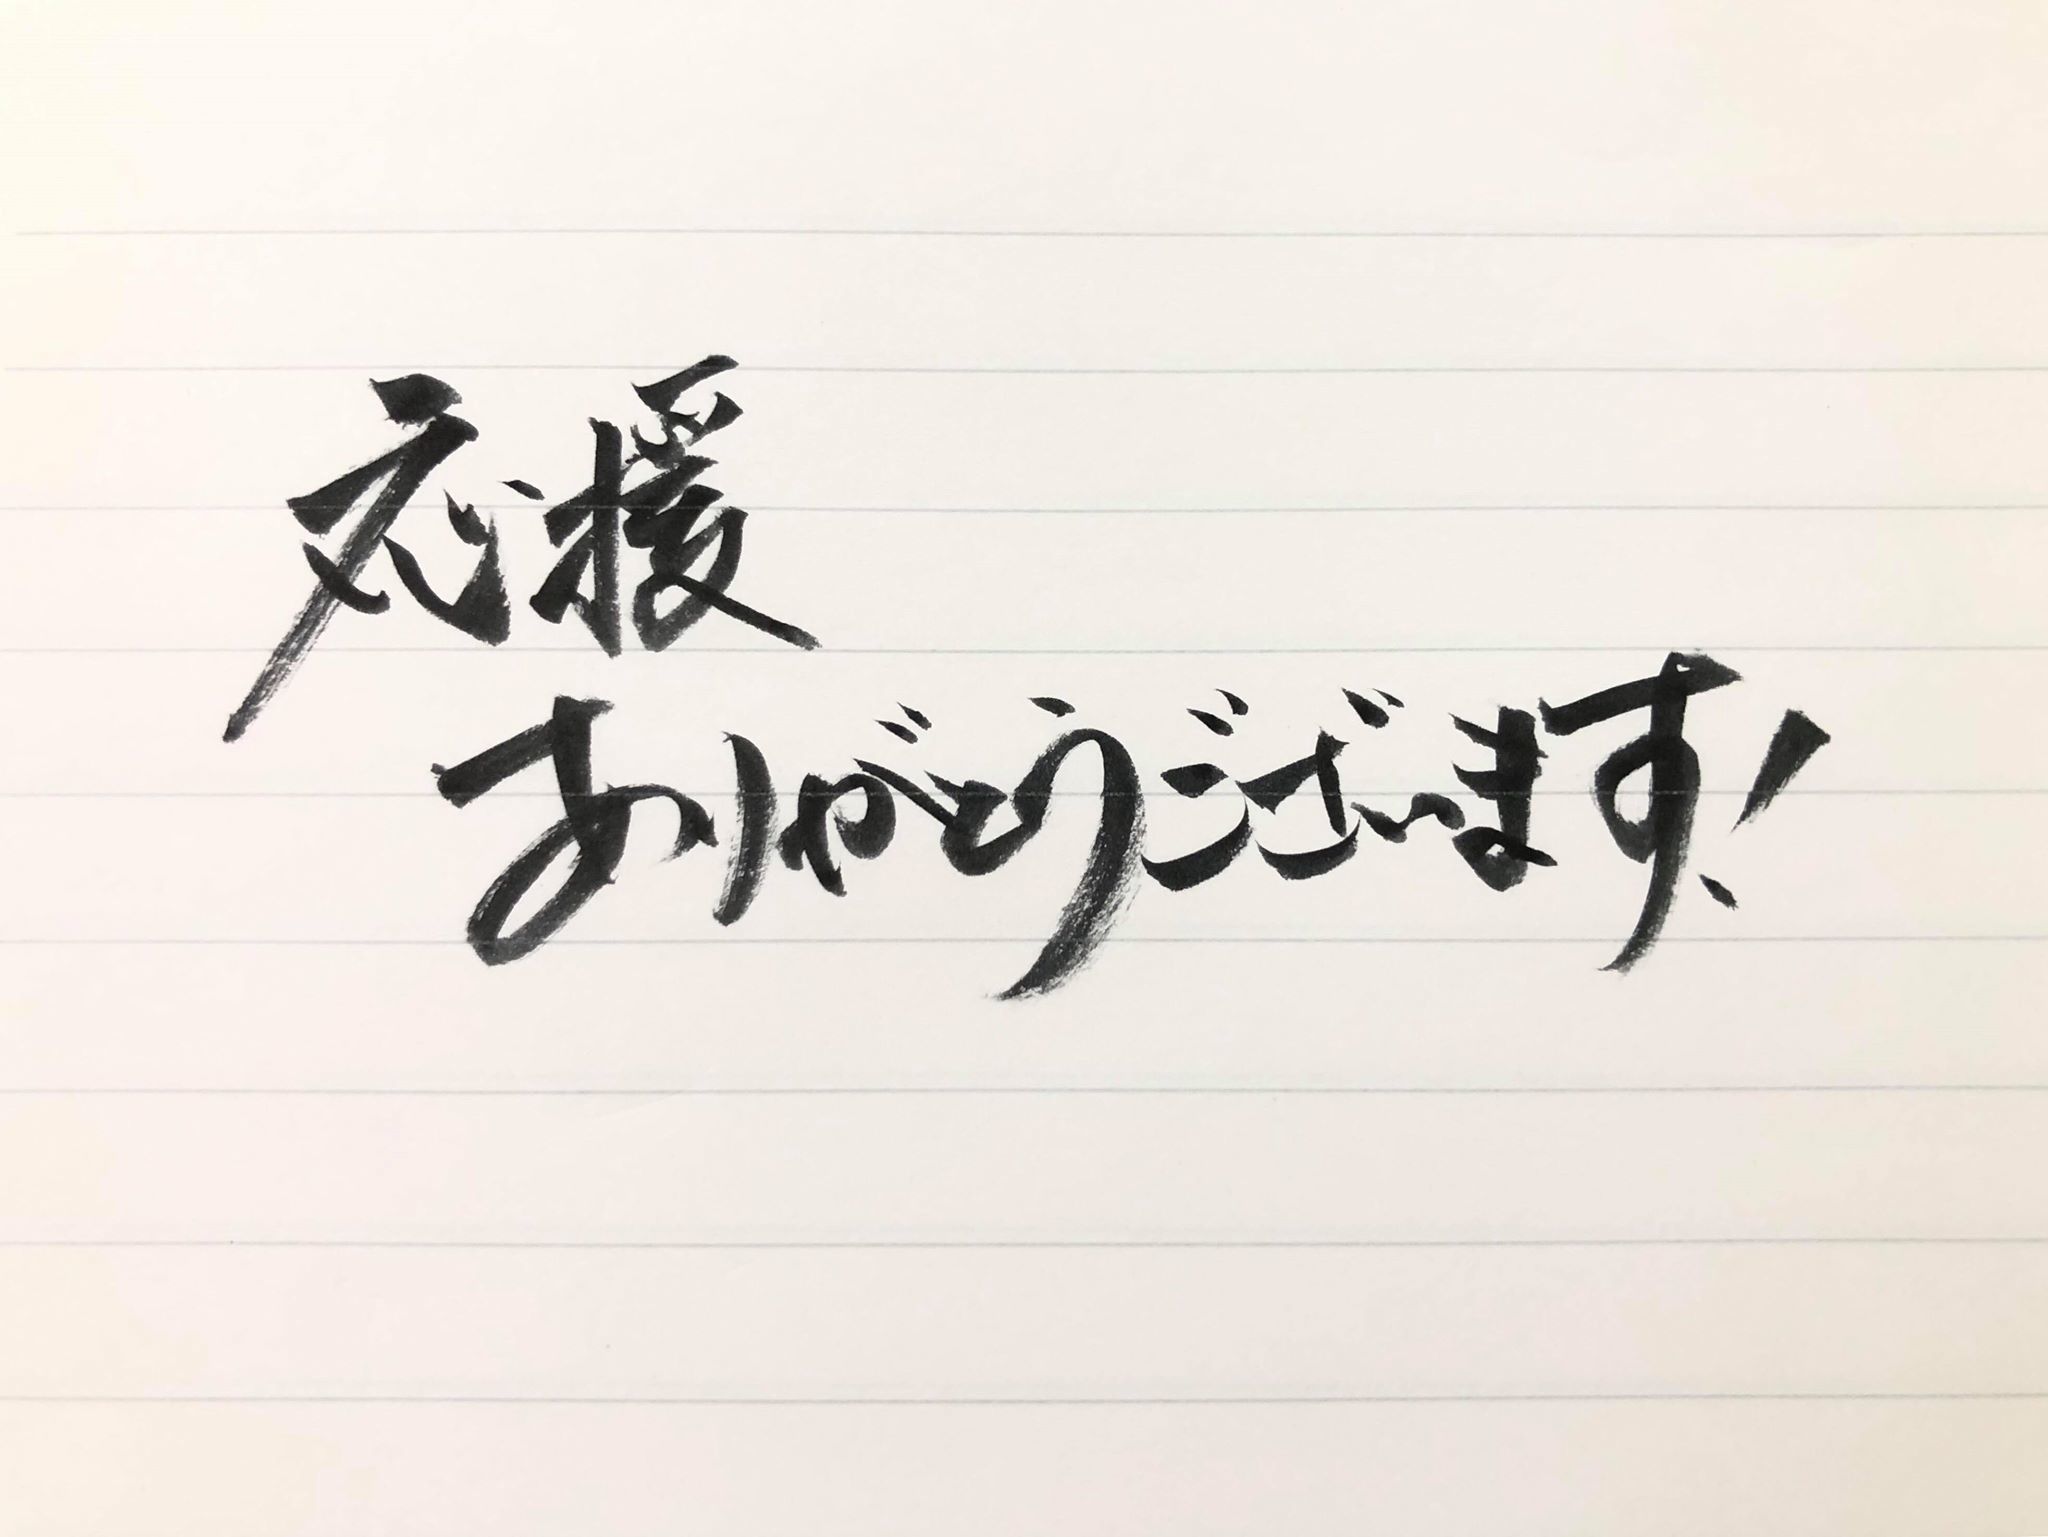 応援
ありがとうございます!